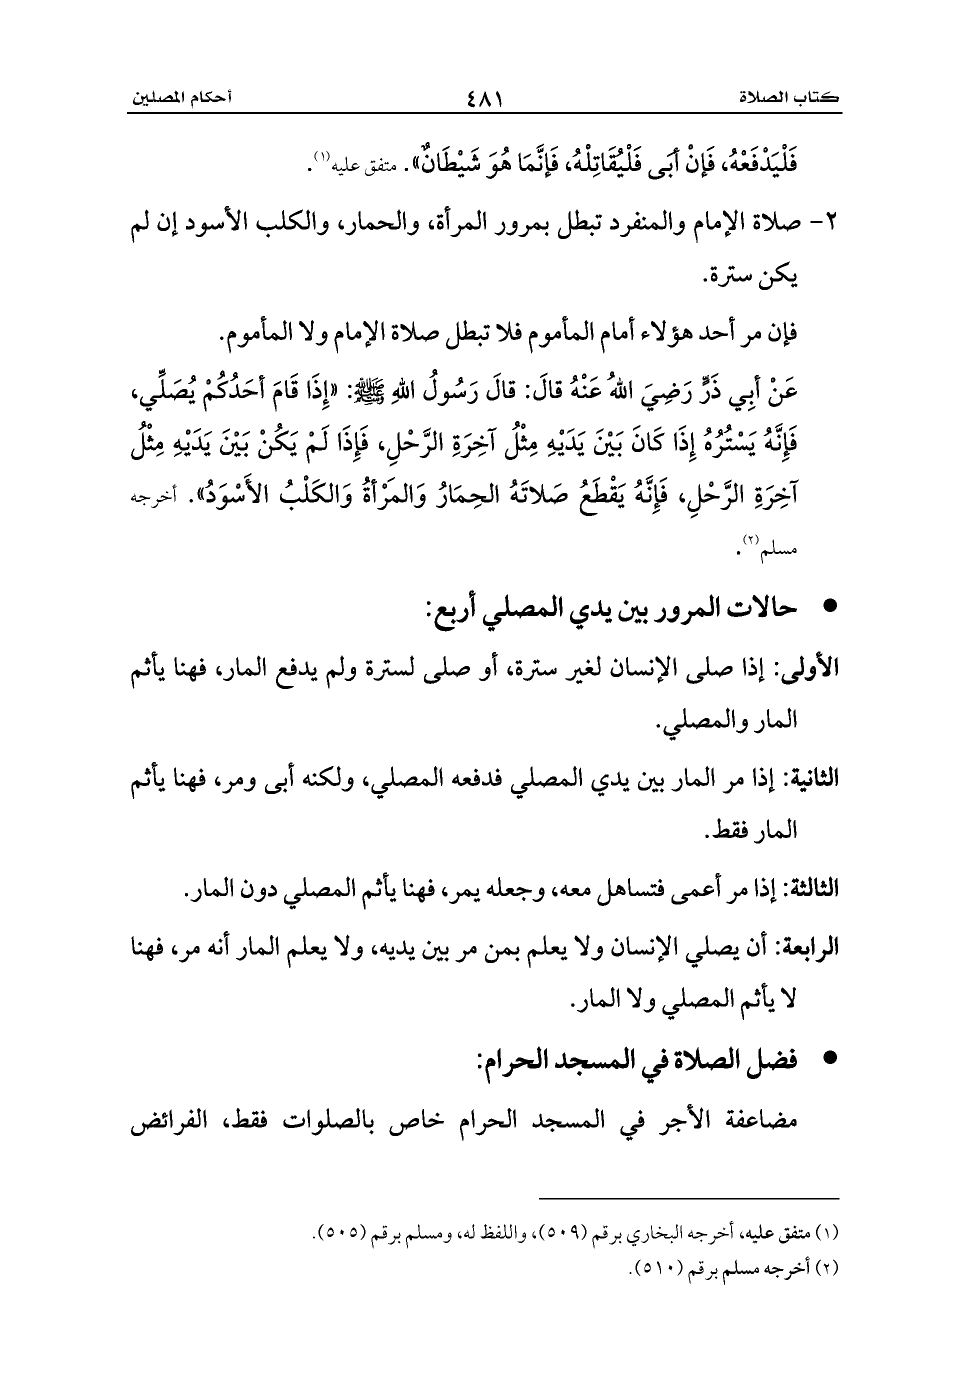 كتاب الصلاة ٤٨١ أحكام المصلين
فَلْيَدْفَعْهُ، فَإِنْ أَبَى فَلْيُقَاتِلْهُ، فَإِنَّمَا هُوَ شَيْطَانٌ». متفق عليه(١).
٢- صلاة الإمام والمنفرد تبطل بمرور المرأة، والحمار، والكلب الأسود إن لم
يكن سترة.
فإن مر أحد هؤلاء أمام المأموم فلا تبطل صلاة الإمام ولا المأموم.
عَنْ أَبِي ذَرٍّ رَضِيَ اللهُ عَنْهُ قالَ: قالَ رَسُولُ اللهِ ﷺ: «إِذَا قَامَ أَحَدُكُمْ يُصَلِّي،
فَإِنَّهُ يَسْتُرُهُ إِذَا كَانَ بَيْنَ يَدَيْهِ مِثْلُ آخِرَةِ الرَّحْلِ، فَإِذَا لَمْ يَكُنْ بَيْنَ يَدَيْهِ مِثْلُ
آخِرَةِ الرَّحْلِ، فَإِنَّهُ يَقْطَعُ صَلاتَهُ الحِمَارُ وَالمَرْأةُ وَالكَلْبُ الأَسْوَدُ». أخرجه
مسلم(٢).
● حالات المرور بين يدي المصلي أربع:
الأولى: إذا صلى الإنسان لغير سترة، أو صلى لسترة ولم يدفع المار، فهنا يأثم
المار والمصلي.
الثانية: إذا مر المار بين يدي المصلي فدفعه المصلي، ولكنه أبى ومر، فهنا يأثم
المار فقط.
الثالثة: إذا مر أعمى فتساهل معه، وجعله يمر، فهنا يأثم المصلي دون المار.
الرابعة: أن يصلي الإنسان ولا يعلم بمن مر بين يديه، ولا يعلم المار أنه مر، فهنا
لا يأثم المصلي ولا المار.
● فضل الصلاة في المسجد الحرام:
مضاعفة الأجر في المسجد الحرام خاص بالصلوات فقط، الفرائض
(١) متفق عليه، أخرجه البخاري برقم (٥٠٩)، واللفظ له، ومسلم برقم (٥٠٥).
(٢) أخرجه مسلم برقم (٥١٠).